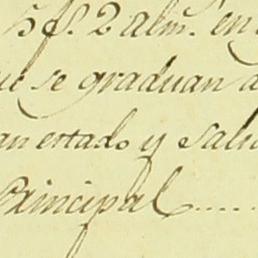 5 f.s 2 alm.s en
se graduan a
an estado y salu
Principal